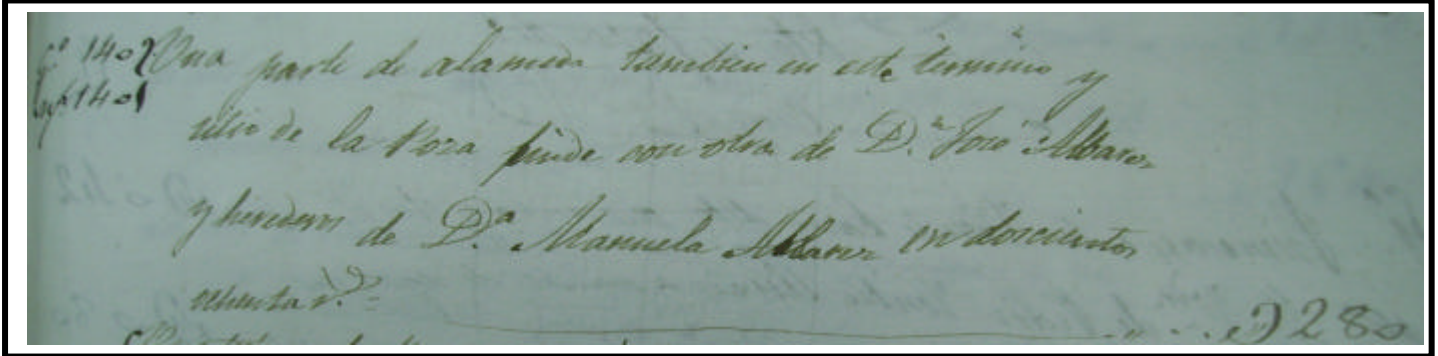 nº 140 Una parte de alameda tambien en este termino y
141
sitio de la Poza linde con otra de D.n José Albarez
y herederos de D.ª Manuela Albarez en doscientos
ochenta r.s
280